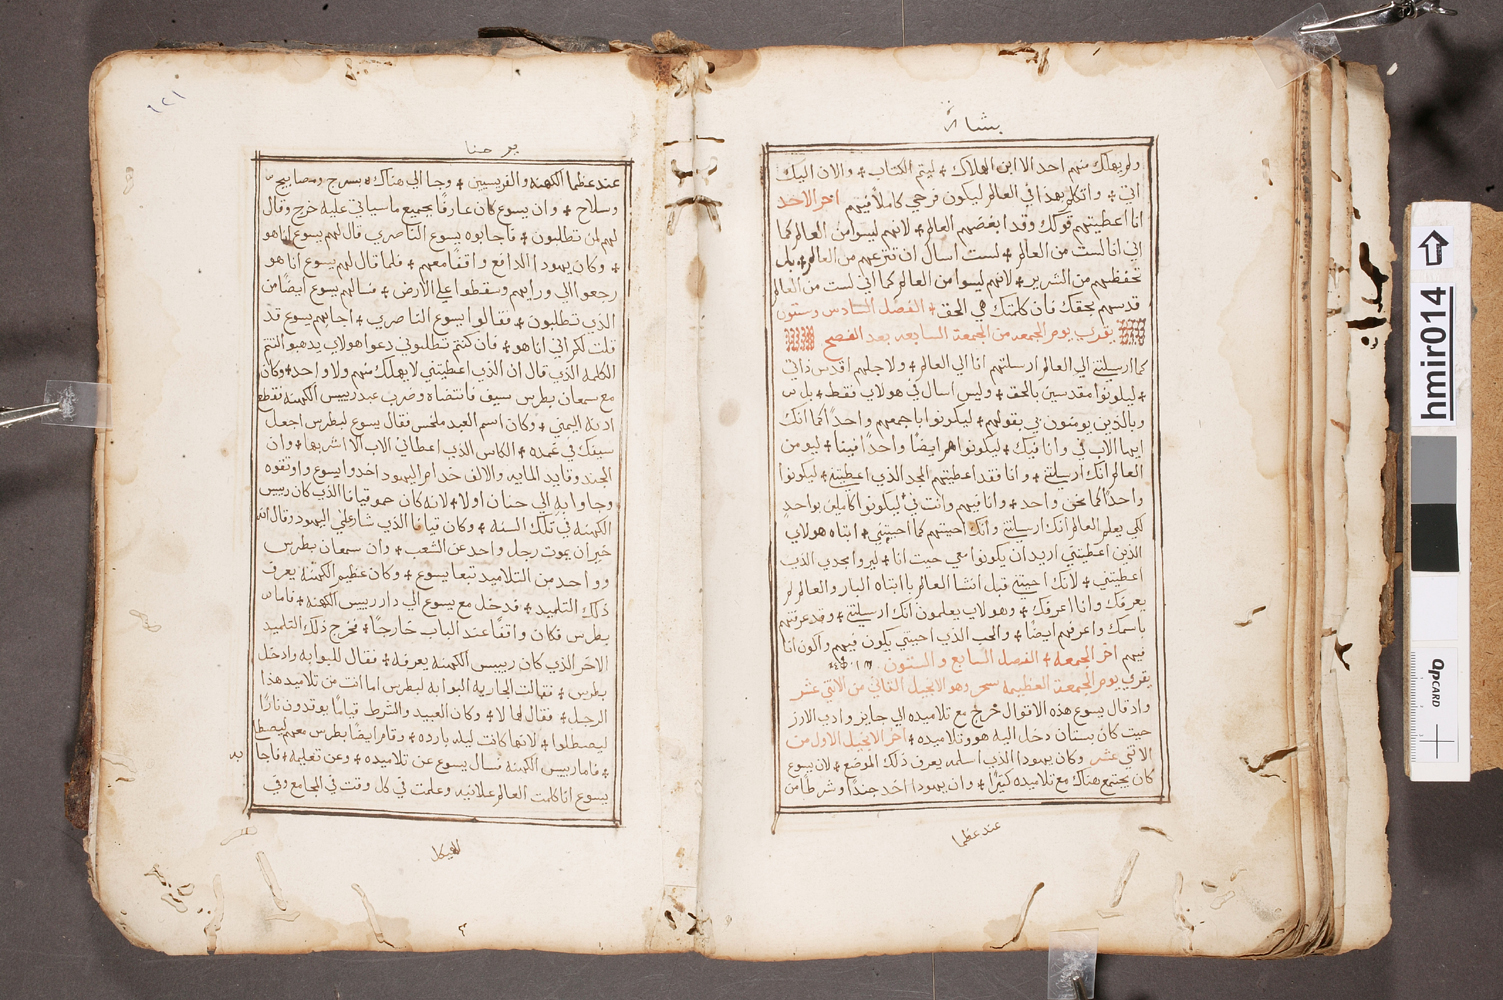 بشارة
ولم يهلك منهم احد الا ابن الهلاك + ليتم الكتاب + والان اليك
اتي + واتكلم بهذا في العالم ليكون فرحي كاملاً فيهم اخر الاحد
انا اعطيتهم قولك وقد ابغضهم العالم + لانهم ليسوا من العالم كما
اني انا لست من العالم + لست اسال ان تنزعهم من العالم + بل
تحفظهم من الشرير + لانهم ليسوا من العالم كما اني لست من العالم
قدسهم بحقك فان كلمتك هي الحق + الفصل السادس وستون
يقري يوم الجمعه من الجمعة السابعه بعد الفصح
كما ارسلتني الي العالم ارسلتهم انا الي العالم + ولاجلهم اقدس ذاتي
+ ليكونوا مقدسين بالحق + وليس اسال في هولاي فقط + بل
وبالذين يومنون بي بقولهم + ليكونوا باجمعهم واحداً كما انك
ايها الاب في وانا فيك + ليكونوا هم ايضاً واحداً فينا + ليومن
العالم انك ارسلتني + وانا فقد اعطيتهم المجد الذي اعطيتني + ليكونوا
واحداً كما نحن واحد + وانا فيهم وانت في ليكونوا كاملين بواحدٍ
لكي يعلم العالم انك ارسلتني وانك احببتهم كما احببتني + ابتاه هولاي
الذين اعطيتني اريد ان يكونوا معي حيث انا + ليروا مجدي الذي
اعطيتني + لانك احببتني قبل انشا العالم يا ابتاه البار والعالم لم
يعرفك وانا اعرفك + وهولاي يعلمون انك ارسلتني + وقد عرفتهم
باسمك واعرفهم ايضاً + والحب الذي احببتني يكون فيهم واكون انا
فيهم اخر الجمعه + الفصل السابع والستون
يقري يوم الجمعة العظيمه سحر وهو الانجيل الثاني من الاثني عشر
واذ قال يسوع هذه الاقوال خرج مع تلاميذه الي جايز وادي الارز
حيث كان بستان دخل اليه هو وتلاميذه + اخر الانجيل الاول من
الاثني عشر وكان يهوذا الذي اسلمه يعرف ذلك الموضع + لان يسوع
كان يجتمع هناك مع تلاميذه كثيراً + وان يهوذا اخذ جنداً وشرطاً من
عند عظما
يوحنا
عند عظما الكهنه والفريسيين + وجا الي هناك بسرج ومصابيح
وسلاح + وان يسوع كان عارفاً بجميع ما سياتي عليه خرج وقال
لهم لمن تطلبون + فاجابوه يسوع الناصري قال لهم يسوع انا هو
+ وكان يهوذا الدافع واقفاً معهم + فلما قال لهم يسوع انا هو
رجعوا الي ورايهم وسقطوا علي الارض + فسالهم يسوع ايضاً من
الذي تطلبون + فقالوا يسوع الناصري + اجابهم يسوع قد
قلت لكم اني انا هو + فان كنتم تطلبوني دعوا هولاي يذهبوا لتتم
الكلمه الذي قال ان الذي اعطيتني لا يهلك منهم ولا واحد + وكان
مع سمعان بطرس سيف فانتضاه وضرب عبد رييس الكهنه فقطع
اذنه اليمني + وكان اسم العبد ملخس فقال يسوع لبطرس اجعل
سيفك في غمده + الكاس الذي اعطاني الاب الا اشربها + وان
الجند وقايد المايه والالف خدام اليهود اخذوا يسوع واوثقوه
وجاوا به الي حنان اولا + لانه كان حمو قيافا الذي كان رييس
الكهنه في تلك السنه + وكان قيافا الذي شار علي اليهود وقال انه
خير ان يموت رجل واحد عن الشعب + وان سمعان بطرس
وواحد من التلاميذ تبعا يسوع + وكان عظيم الكهنه يعرف
ذلك التلميذ + فدخل مع يسوع الي دار رييس الكهنه + فاما
بطرس فكان واقفاً عند الباب خارجاً + فخرج ذلك التلميذ
الاخر الذي كان رييس الكهنه يعرفه + فقال للبوابه وادخل
بطرس + فقالت الجاريه البوابه لبطرس اما انت من تلاميذ هذا
الرجل + فقال لها لا + وكان العبيد والشرط قياماً يوقدون ناراً
ليصطلوا + لانها كانت ليله بارده + وقام ايضاً بطرس معهم ليصطلي
+ فاما رييس الكهنه فسال يسوع عن تلاميذه + وعن تعليمه + فاجابه
يسوع انا كلمت العالم علانيه وعلمت في كل وقت في المجامع وفي
الهيكل
hmir014
QPCARD